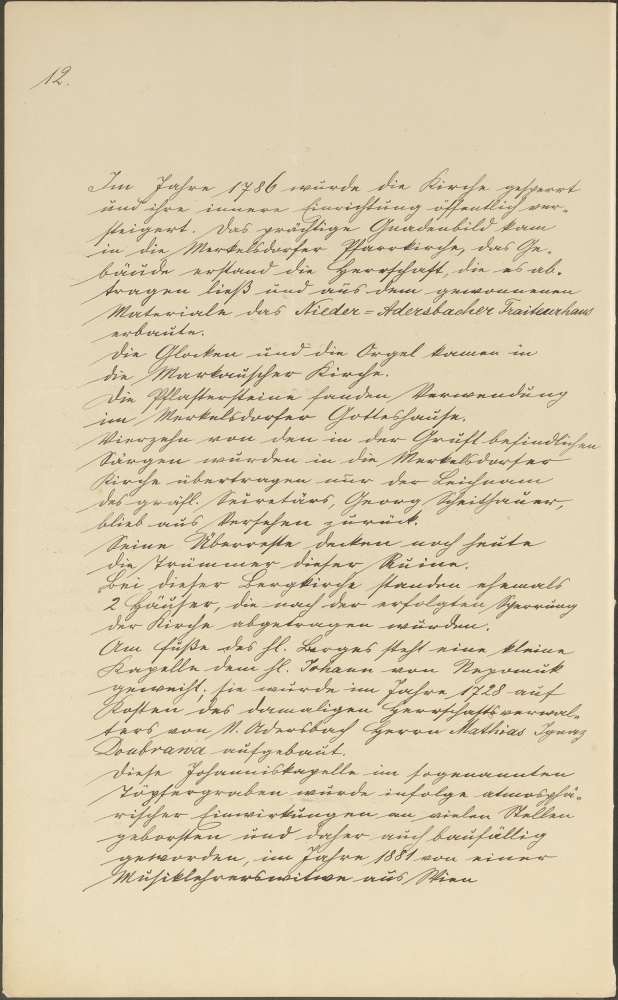 12.
Im Jahre 1786 wurde die Kirche gesperrt
und ihre innere Einrichtung öffentlich ver-
steigert. Das prächtige Gnadenbild kam
in die Merkelsdorfer Pfarrkirche, das Ge-
bäude erstand die Herrschaft, die es ab-
tragen ließ und aus dem gewonnenen
Materiale das Nieder-Adersbacher Traiteurhaus
erbaute.
Die Glocken und die Orgel kamen in
die Markauscher Kirche.
Die Pflastersteine fanden Verwendung
im Merkelsdorfer Gotteshause.
Vierzehn von den in der Gruft befindlichen
Särgen wurden in die Merkelsdorfer
Kirche übertragen nur der Leichnam
des gräfl. Secretärs, Georg Scheithauer,
blieb aus Versehen zurück.
Seine Überreste decken noch heute
die Trümmer dieser Ruine.
Bei dieser Bergkirche standen ehemals
2 Häuser, die nach der erfolgten Sperrung
der Kirche abgetragen wurden.
Am Fuße des hl. Berges steht eine kleine
Kapelle dem hl. Johann von Nepomuk
geweiht; sie wurde im Jahre 1728 auf
Kosten des damaligen Herrschaftsverwal-
ters von N. Adersbach Herrn Mathias Ignaz
Doubrawa aufgebaut.
Diese Johanniskapelle im sogenannten
Töpfergraben wurde infolge atmosphä-
rischer Einwirkungen an vielen Stellen
geborsten und daher auch baufällig
geworden, im Jahre 1881 von einer
Musiklehrerswitwe aus Wien